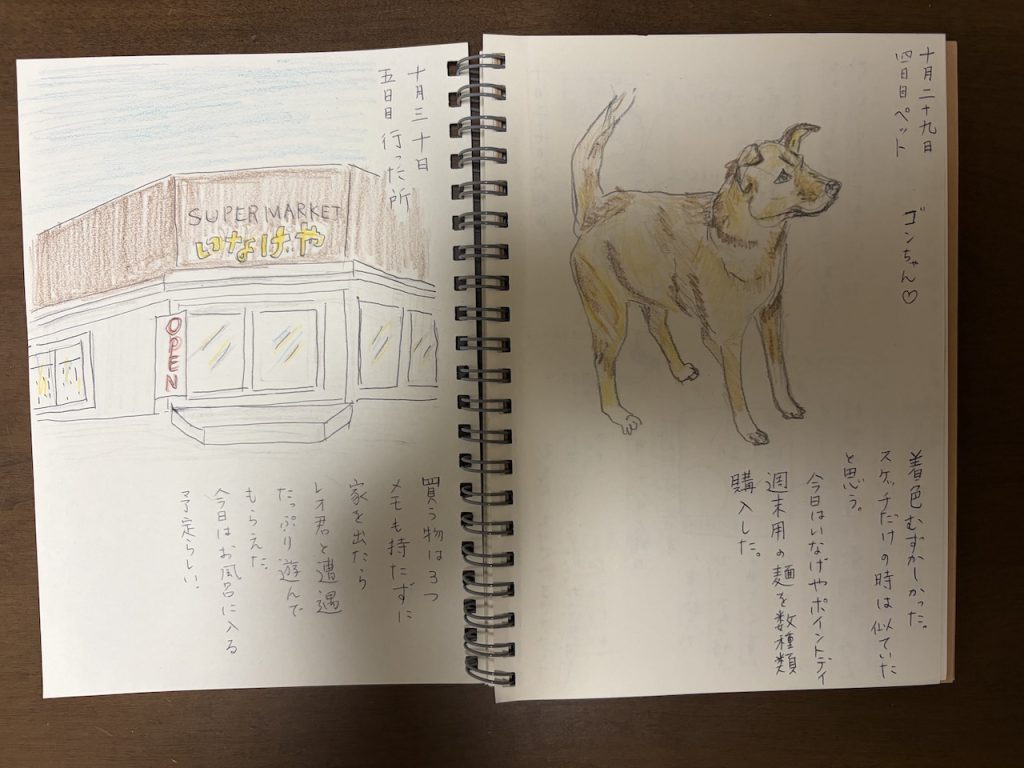 十月二十九日
四日目 ペット ゴンちゃん♡
着色むずかしかった。
スケッチだけの時は似ていた
と思う。
今日はいなげやポイントデイ
週末用の麺を数種類
購入した。
十月三十日
五日目 行った所
SUPER MARKET
いなげや
OPEN
買う物は3つ
メモも持たずに
家を出たら
レオ君と遭遇
たっぷり遊んで
もらえた。
今日はお風呂に入る
予定らしい。